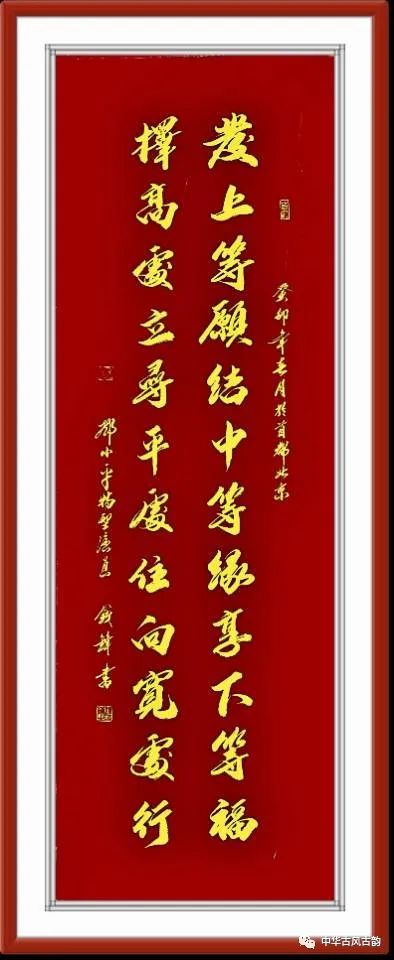 癸卯年春月於首都北京
發上等願結中等緣享下等福
擇高處立尋平處住向寬處行
鄧小平特型演員 錢鋒書
中华古风古韵